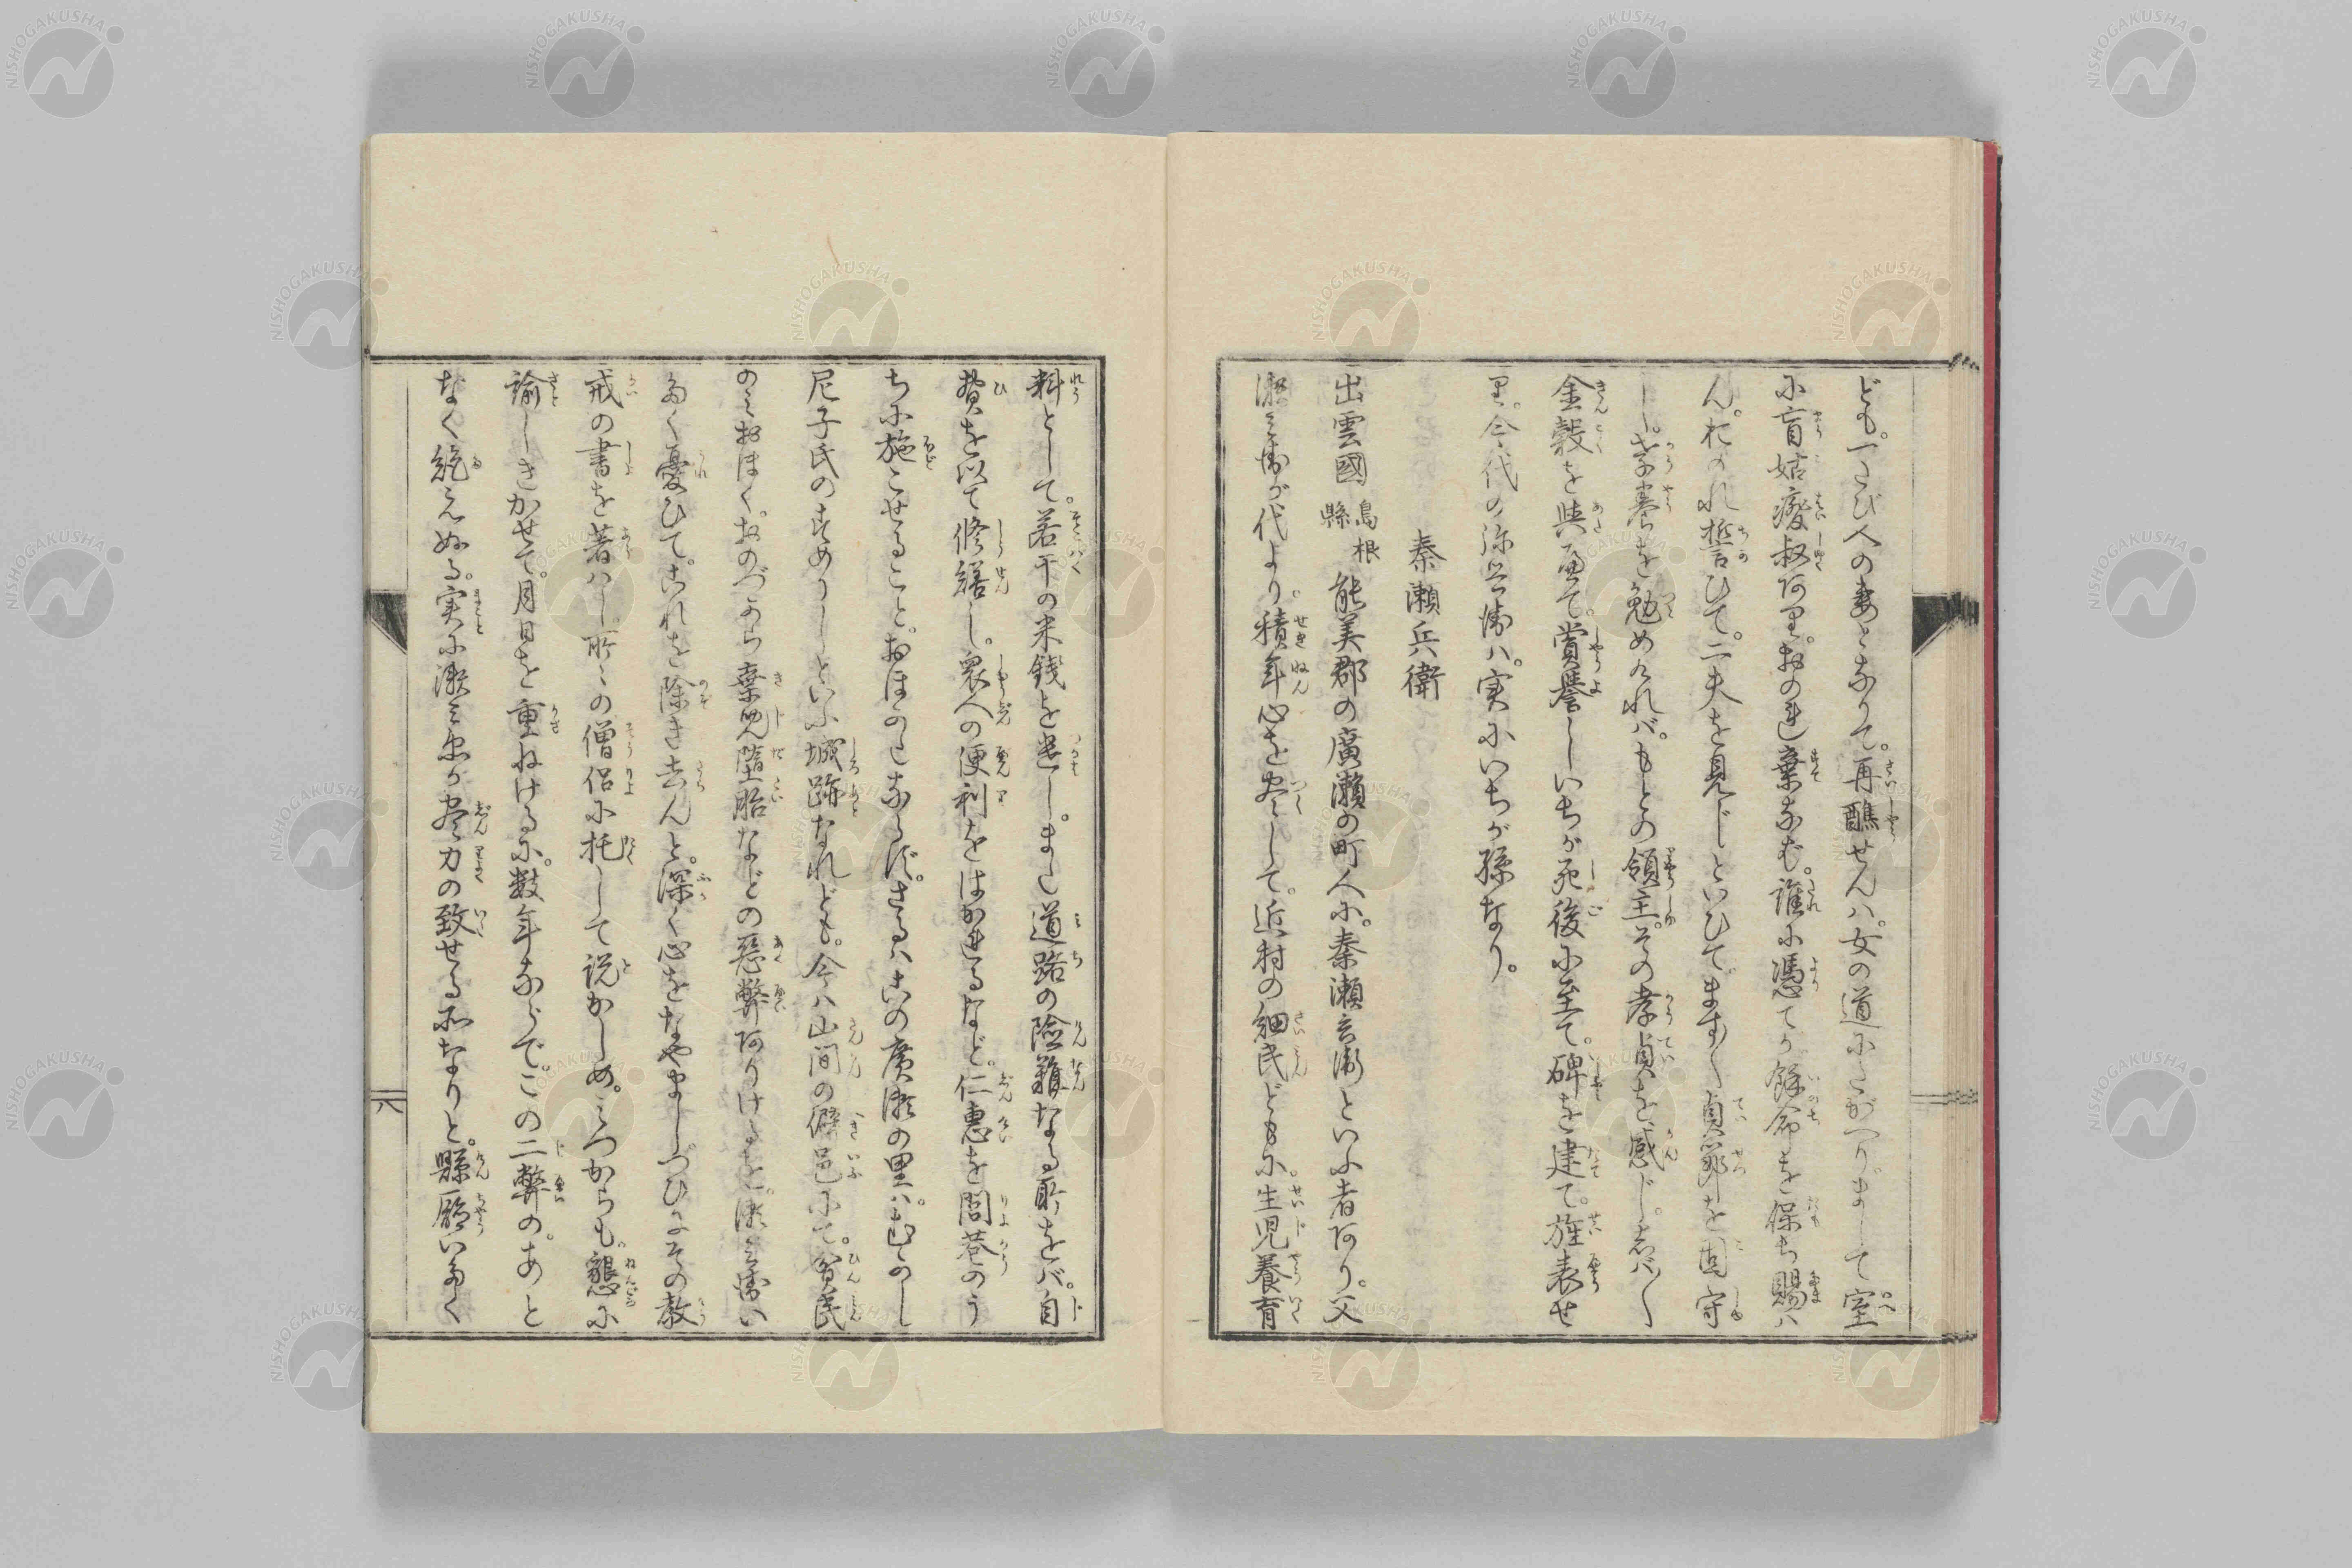 ども。一たび人の妻となりて。再醮せんハ。女の道にたがへり。まして室
に盲姑癈叔阿里。おのれ棄なむ。誰に憑てか餘命を保ち賜ハ
ん。おのれ誓ひて。二夫を見じといひて。ます〱貞節を固守
し。孝養を勉めけれバ。もとの領主。その孝貞を感じ。志バ〱
金穀を與へて。賞誉しいちが死後に至て。碑を建て。旌表せ
里。今代の弥兵衛ハ。実にいちが孫なり。
秦瀬兵衛
出雲國島根縣能美郡の廣瀬の町人に。秦瀬兵衛といふ者阿り。父
瀬三衛が代より。積年心を尽して。近村の細民どもに。生児養育
料として。若干の米銭を遣し。また道路の險難なる所をバ。自
費を以て修繕し。衆人の便利をはかれるなど。仁惠を閭巷のう
ちに施こせること。おほかたならず。さるハ此の廣瀬の里ハ。むかし
尼子氏のすめりしといふ城跡なれども。今ハ山間の僻邑にて。貧民
のミおほく。おのづから棄児墮胎などの惡弊阿りけるを。瀬三衛い
たく憂ひて。これを除き去んと。深く心をなやまし。つひにその教
戒の書を著ハし。所〻の僧侶に托して説かしめ。ミつからも。懇に
諭しきかせて。月日を重ねけるに。数年ならで。この二弊の。あと
なく絶えぬる。実に瀬三衛が尽力の致せる所なりと。縣廳いたく
八
NISHOGAKUSHA